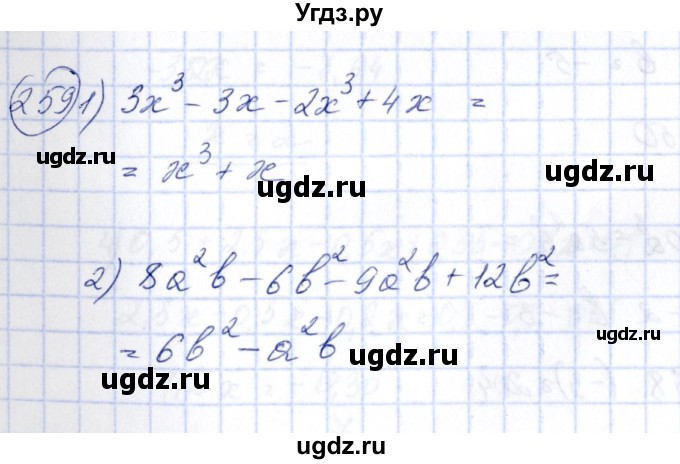 Угдз.ру
259 1) 3x³ - 3x - 2x³ + 4x =
ugdz.ru
= x³ + x
ugdz.ru
ugdz.ru
2) 8a²b - 6b² - 9a²b + 12b² =
ugdz.ru
= 6b² - a²b
ugdz.ru
ugdz.ru
ugdz.ru